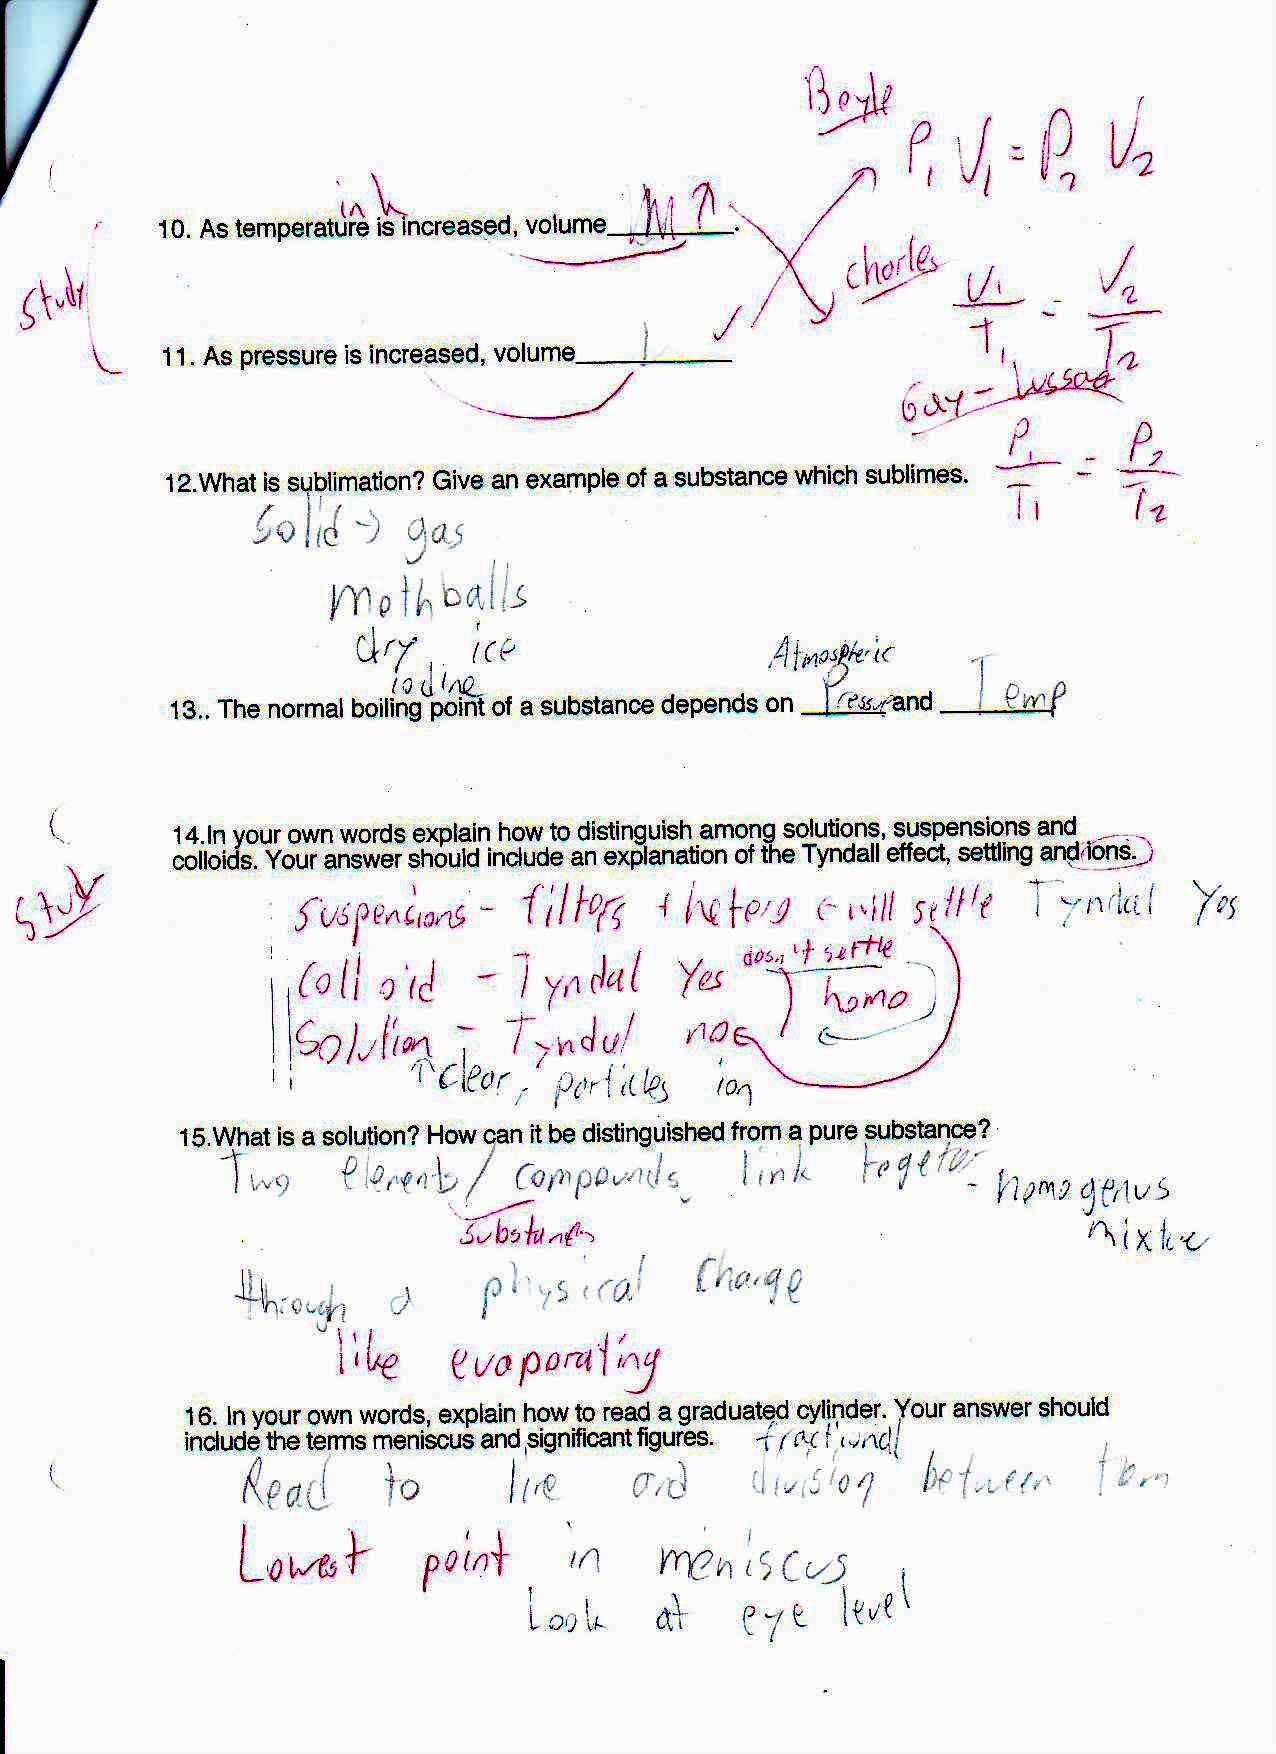 Boyle
P1 V1 = P2 V2
in
10. As temperature is increased, volume ↑.
Charles
V1/T1 = V2/T2
Study
11. As pressure is increased, volume
Gay-Lussac
P1/T1 = P2/T2
12.What is sublimation? Give an example of a substance which sublimes.
Solid → gas
mothballs
dry ice
iodine
Atmospheric
13.. The normal boiling point of a substance depends on Pressure and Temp
14.In your own words explain how to distinguish among solutions, suspensions and
colloids. Your answer should include an explanation of the Tyndall effect, settling and ions.
Study
Suspensions - filters + hetero will settle Tyndal Yes
Colloid - Tyndal Yes dosn't settle
homo
Solution - Tyndal no
↑ clear, particles ion
15.What is a solution? How can it be distinguished from a pure substance?
Two elements/compounds link together - homogenus
mixture
substances
through a physical change
like evaporating
16. In your own words, explain how to read a graduated cylinder. Your answer should
include the terms meniscus and significant figures.
fractional
Read to line and division between them
Lowest point in meniscus
Look at eye level